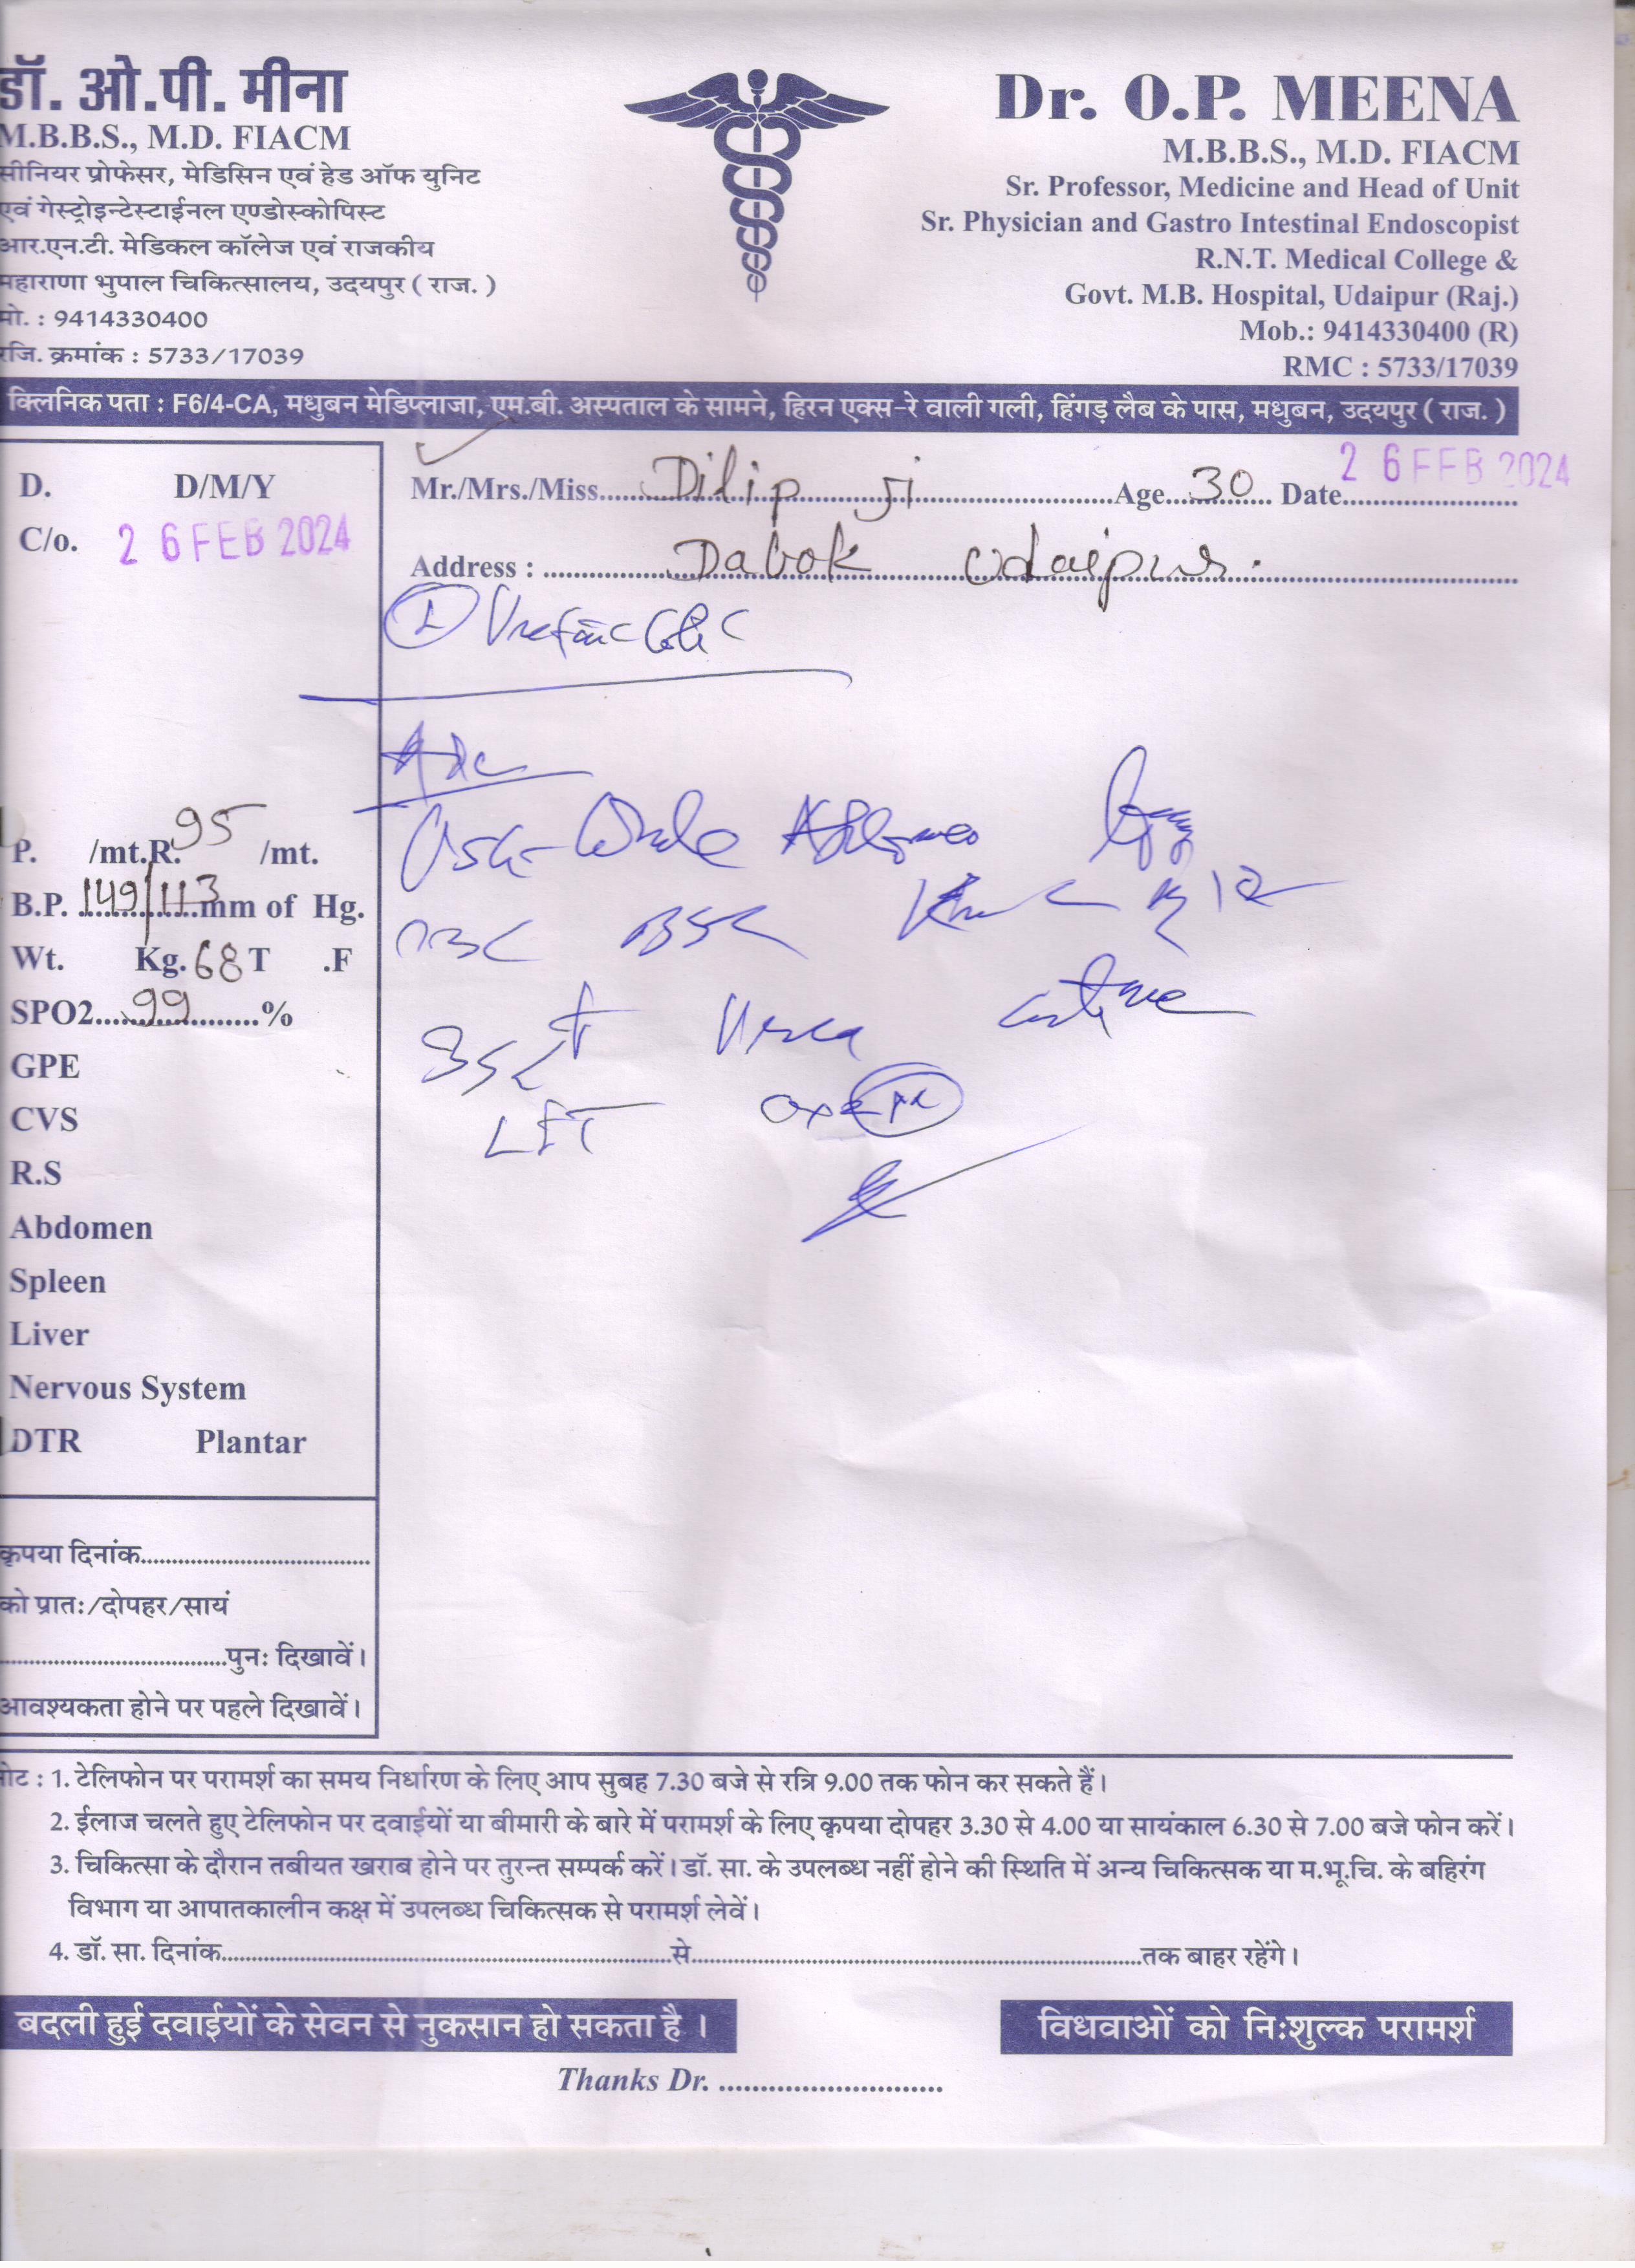 डॉ. ओ.पी. मीना
M.B.B.S., M.D. FIACM
सीनियर प्रोफेसर, मेडिसिन एवं हेड ऑफ युनिट
एवं गेस्ट्रोइन्टेस्टाईनल एण्डोस्कोपिस्ट
आर.एन.टी. मेडिकल कॉलेज एवं राजकीय
महाराणा भुपाल चिकित्सालय, उदयपुर ( राज. )
मो. : 9414330400
रजि. क्रमांक : 5733/17039
Dr. O.P. MEENA
M.B.B.S., M.D. FIACM
Sr. Professor, Medicine and Head of Unit
Sr. Physician and Gastro Intestinal Endoscopist
R.N.T. Medical College &
Govt. M.B. Hospital, Udaipur (Raj.)
Mob.: 9414330400 (R)
RMC : 5733/17039
क्लिनिक पता : F6/4-CA, मधुबन मेडिप्लाजा, एम.बी. अस्पताल के सामने, हिरन एक्स-रे वाली गली, हिंगड़ लैब के पास, मधुबन, उदयपुर ( राज. )
D. D/M/Y
C/o. 26 FEB 2024
Mr./Mrs./Miss Dilip ji Age 30 Date 26 FEB 2024
Address : Dabok Udaipur.
Colic
Adv
USG Whole Abdomen
CBC B12
Urea
LFT
P. /mt.R. 95 /mt.
B.P. 149/113 mm of Hg.
Wt. Kg. 68 T .F
SPO2 99 %
GPE
CVS
R.S
Abdomen
Spleen
Liver
Nervous System
DTR Plantar
कृपया दिनांक
को प्रातः/दोपहर/सायं
पुनः दिखावें।
आवश्यकता होने पर पहले दिखावें।
नोट : 1. टेलिफोन पर परामर्श का समय निर्धारण के लिए आप सुबह 7.30 बजे से रात्रि 9.00 तक फोन कर सकते हैं।
2. ईलाज चलते हुए टेलिफोन पर दवाईयों या बीमारी के बारे में परामर्श के लिए कृपया दोपहर 3.30 से 4.00 या सायंकाल 6.30 से 7.00 बजे फोन करें।
3. चिकित्सा के दौरान तबीयत खराब होने पर तुरन्त सम्पर्क करें। डॉ. सा. के उपलब्ध नहीं होने की स्थिति में अन्य चिकित्सक या म.भू.चि. के बहिरंग
विभाग या आपातकालीन कक्ष में उपलब्ध चिकित्सक से परामर्श लेवें।
4. डॉ. सा. दिनांक से तक बाहर रहेंगे।
बदली हुई दवाईयों के सेवन से नुकसान हो सकता है।
विधवाओं को निःशुल्क परामर्श
Thanks Dr.